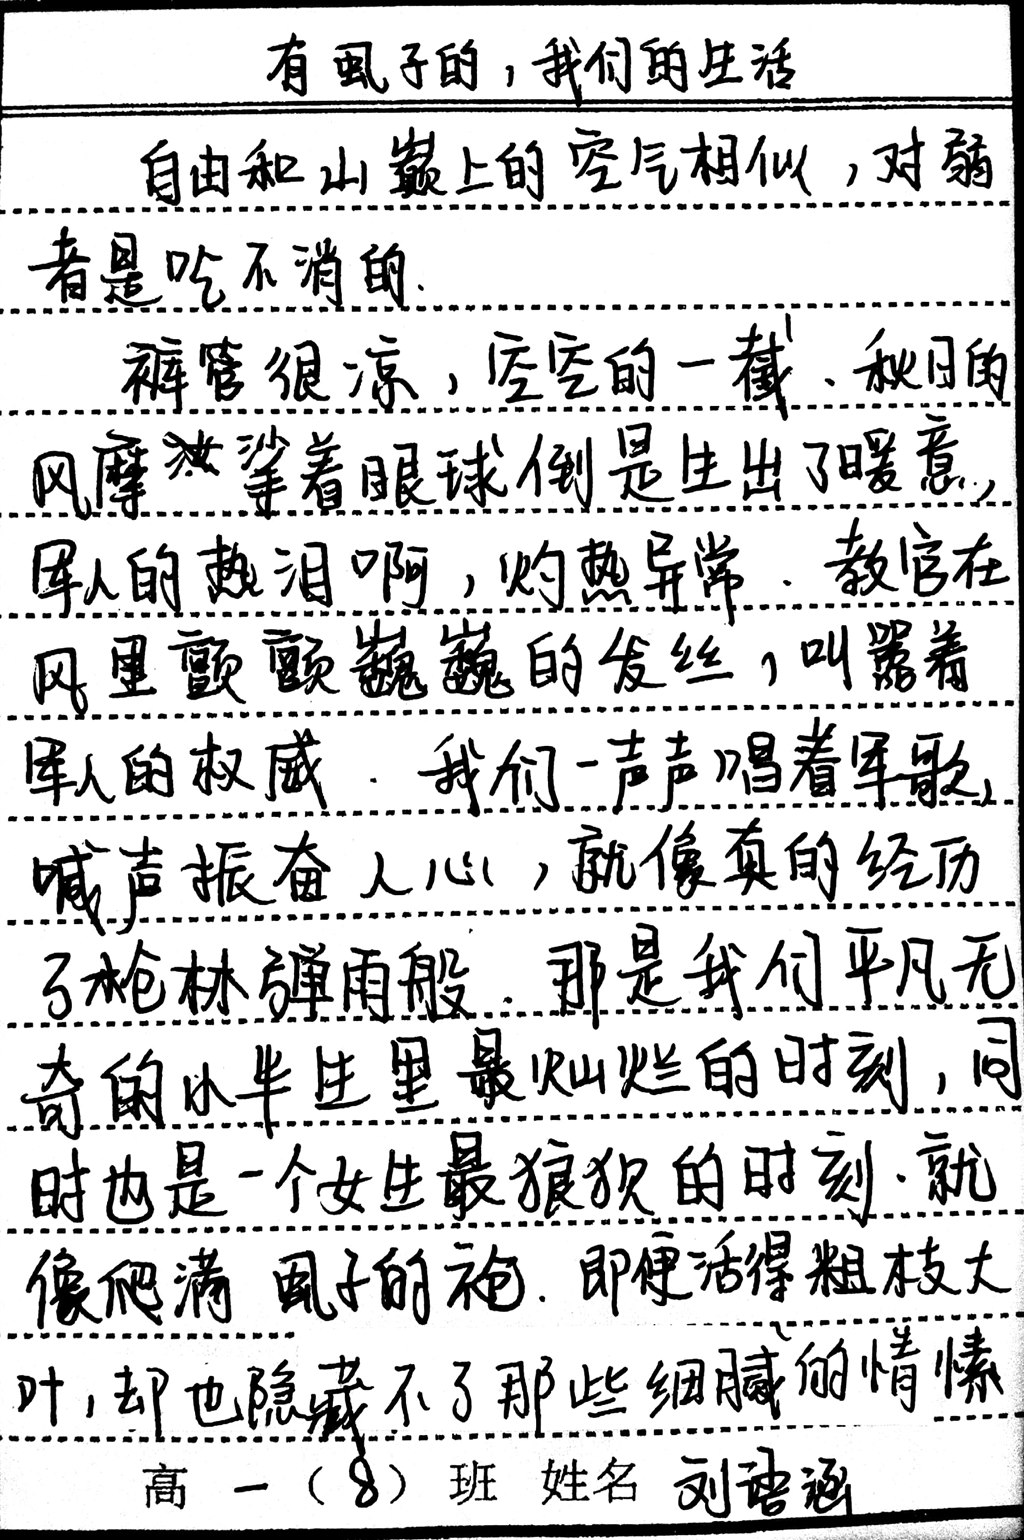 有虱子的，我们的生活
自由和山巅上的空气相似，对弱
者是吃不消的.
裤管很凉，空空的一截、秋日的
风摩挲着眼球倒是生出了暖意，
军人的热泪啊，灼热异常．教官在
风里颤颤巍巍的发丝，叫嚣着
军人的权威．我们一声声唱着军歌，
喊声振奋人心，就像真的经历
了枪林弹雨般．那是我们平凡无
奇的小半生里最灿烂的时刻，同
时也是一个女生最狼狈的时刻．就
像爬满虱子的袍．即便活得粗枝大
叶，却也隐藏不了那些细腻的情愫
高一（8）班 姓名 刘语涵